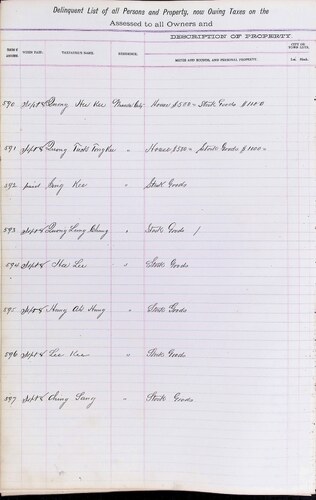 Delinquent List of all Persons and Property, now Owing Taxes on the
Assessed to all Owners and
DESCRIPTION OF PROPERTY.
TAXPAYER'S NAME. RESIDENCE. HOUSE AND
590 Sept 8 Quong Hee Kee House $500 - Stock Goods $1100
591 Sept 8 Quong Took Tong Kee " House $550 - Stock Goods $1000 -
592 paid Sang Kee Stock Goods
593 Sept 8 Quong Lung Ching " Stock Goods /
594 Sept 8 Hee Lee " Stock Goods
595 Sept 8 Hung Ah Hung " Stock Goods
596 Sept 8 Lee Kee " Stock Goods
597 Sept 8 Chung Sang " Stock Goods